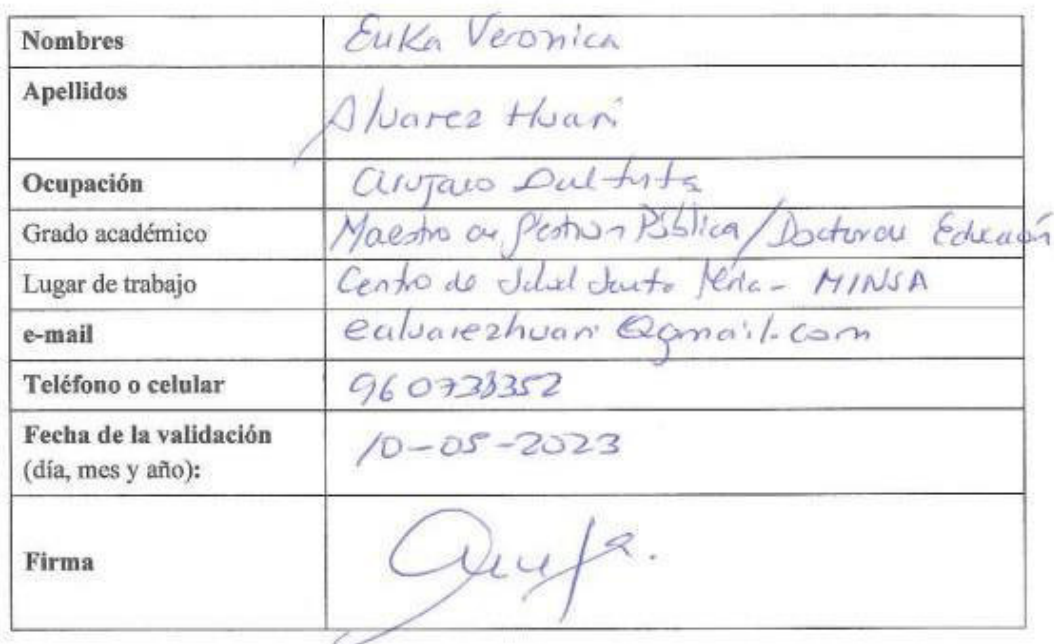 Nombres Erika Veronica
Apellidos Alvarez Huari
Ocupación Cirujano Dentista
Grado académico Maestro en Gestion Pública / Doctor en Educación
Lugar de trabajo Centro de Salud - MINSA
e-mail ealvarezhuari@gmail.com
Teléfono o celular
Fecha de la validación 10-05-2023
(día, mes y año):
Firma